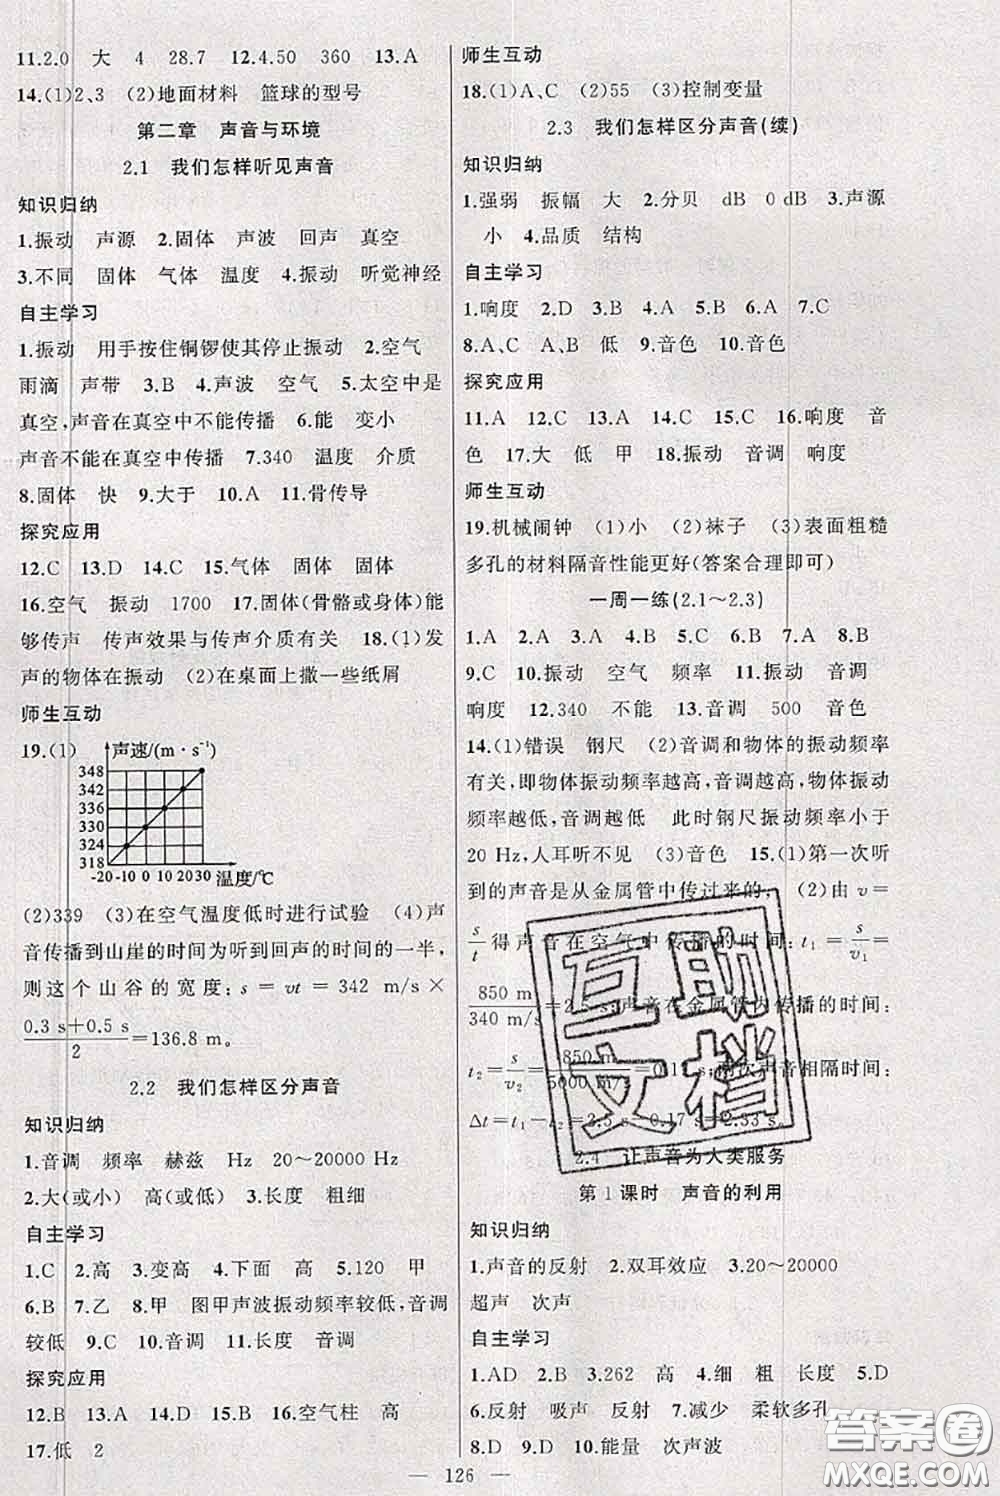 11.2.0 大 4 28.7 12.4.50 360 13.A
14.(1)2、3 (2)地面材料 篮球的型号
第二章 声音与环境
2.1 我们怎样听见声音
知识归纳
1.振动 声源 2.固体 声波 回声 真空
3.不同 固体 气体 温度 4.振动 听觉神经
自主学习
1.振动 用手按住铜锣使其停止振动 2.空气
雨滴 声带 3.B 4.声波 空气 5.太空中是
真空,声音在真空中不能传播 6.能 变小
声音不能在真空中传播 7.340 温度 介质
8.固体 快 9.大于 10.A 11.骨传导
探究应用
12.C 13.D 14.C 15.气体 固体 固体
16.空气 振动 1700 17.固体(骨骼或身体)能
够传声 传声效果与传声介质有关 18.(1)发
声的物体在振动 (2)在桌面上撒一些纸屑
师生互动
19.(1)
声速/(m·s⁻¹)
348
342
336
330
324
318
-20 -10 0 10 20 30 温度/℃
(2)339 (3)在空气温度低时进行试验 (4)声
音传播到山崖的时间为听到回声的时间的一半,
则这个山谷的宽度:s=vt=342 m/s×
(0.3 s+0.5 s)/2=136.8 m。
2.2 我们怎样区分声音
知识归纳
1.音调 频率 赫兹 Hz 20~20000 Hz
2.大(或小) 高(或低) 3.长度 粗细
自主学习
1.C 2.高 3.变高 4.下面 高 5.120 甲
6.B 7.乙 8.甲 图甲声波振动频率较低,音调
较低 9.C 10.音调 11.长度 音调
探究应用
12.B 13.A 14.D 15.B 16.空气柱 高
17.低 2
师生互动
18.(1)A、C (2)55 (3)控制变量
2.3 我们怎样区分声音(续)
知识归纳
1.强弱 振幅 大 2.分贝 dB 0 dB 3.声源
小 4.品质 结构
自主学习
1.响度 2.D 3.B 4.A 5.B 6.A 7.C
8.A、C A、B 低 9.音色 10.音色
探究应用
11.A 12.C 13.A 14.C 15.C 16.响度 音
色 17.大 低 甲 18.振动 音调 响度
师生互动
19.机械闹钟 (1)小 (2)袜子 (3)表面粗糙
多孔的材料隔音性能更好(答案合理即可)
一周一练(2.1~2.3)
1.A 2.A 3.A 4.D 5.B 6.D 7.A 8.B
9.C 10.振动 空气 频率 11.振动 音调
响度 12.340 不能 13.音调 500 音色
14.(1)错误 钢尺 (2)音调和物体的振动频率
有关,即物体振动频率越高,音调越高,物体振动
频率越低,音调越低 此时钢尺振动频率小于
20 Hz,人耳听不见 (3)音色 15.(1)第一次听
到的声音是从金属管中传过来的。 (2)由 v=
s/t得声音在空气中传播的时间:t₁=s/v₁=
850 m/340 m/s=2.5 s;声音在金属管内传播的时间:
t₂=s/v₂=850 m/5000 m/s=0.17 s;两次声音相隔时间:
Δt=t₁-t₂=2.5 s-0.17 s=2.33 s。
2.4 让声音为人类服务
第1课时 声音的利用
知识归纳
1.声音的反射 2.双耳效应 3.20~20000
超声 次声
自主学习
1.AD 2.B 3.262 高 4.细 粗 长度 5.D
6.反射 吸声 反射 7.减少 柔软多孔
8.D 9.D 10.能量 次声波
— 126 —
互助
文档
答案圈
MXQE.COM